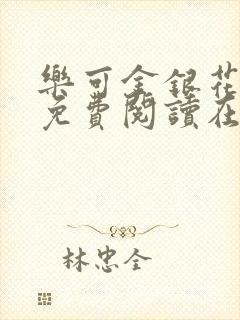 樂可金銀花
免費閱讀在
林忠全